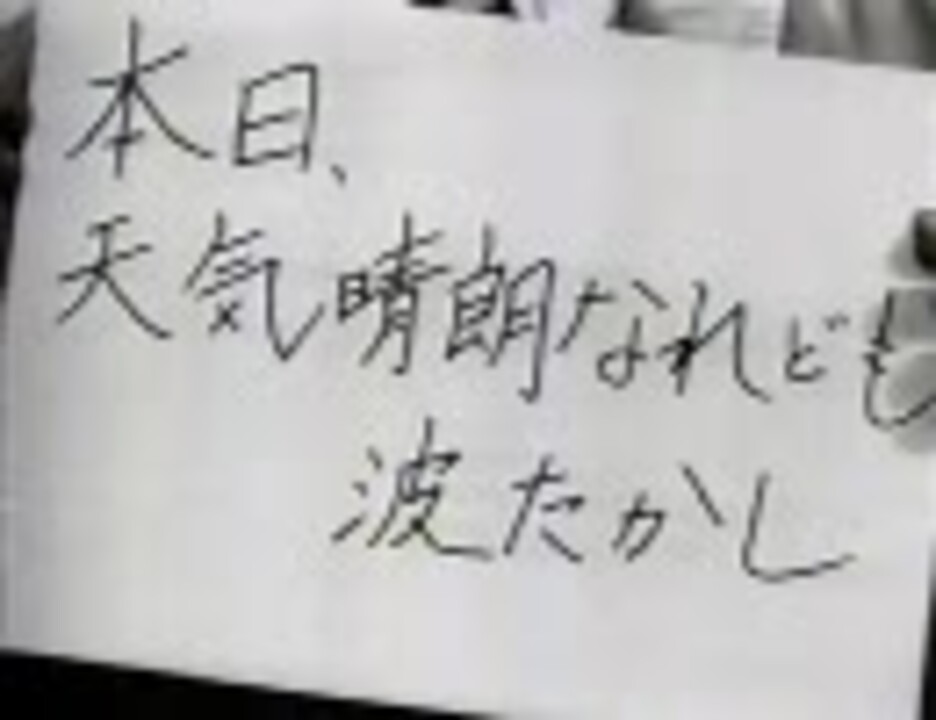 本日、
天気晴朗なれども
波たかし